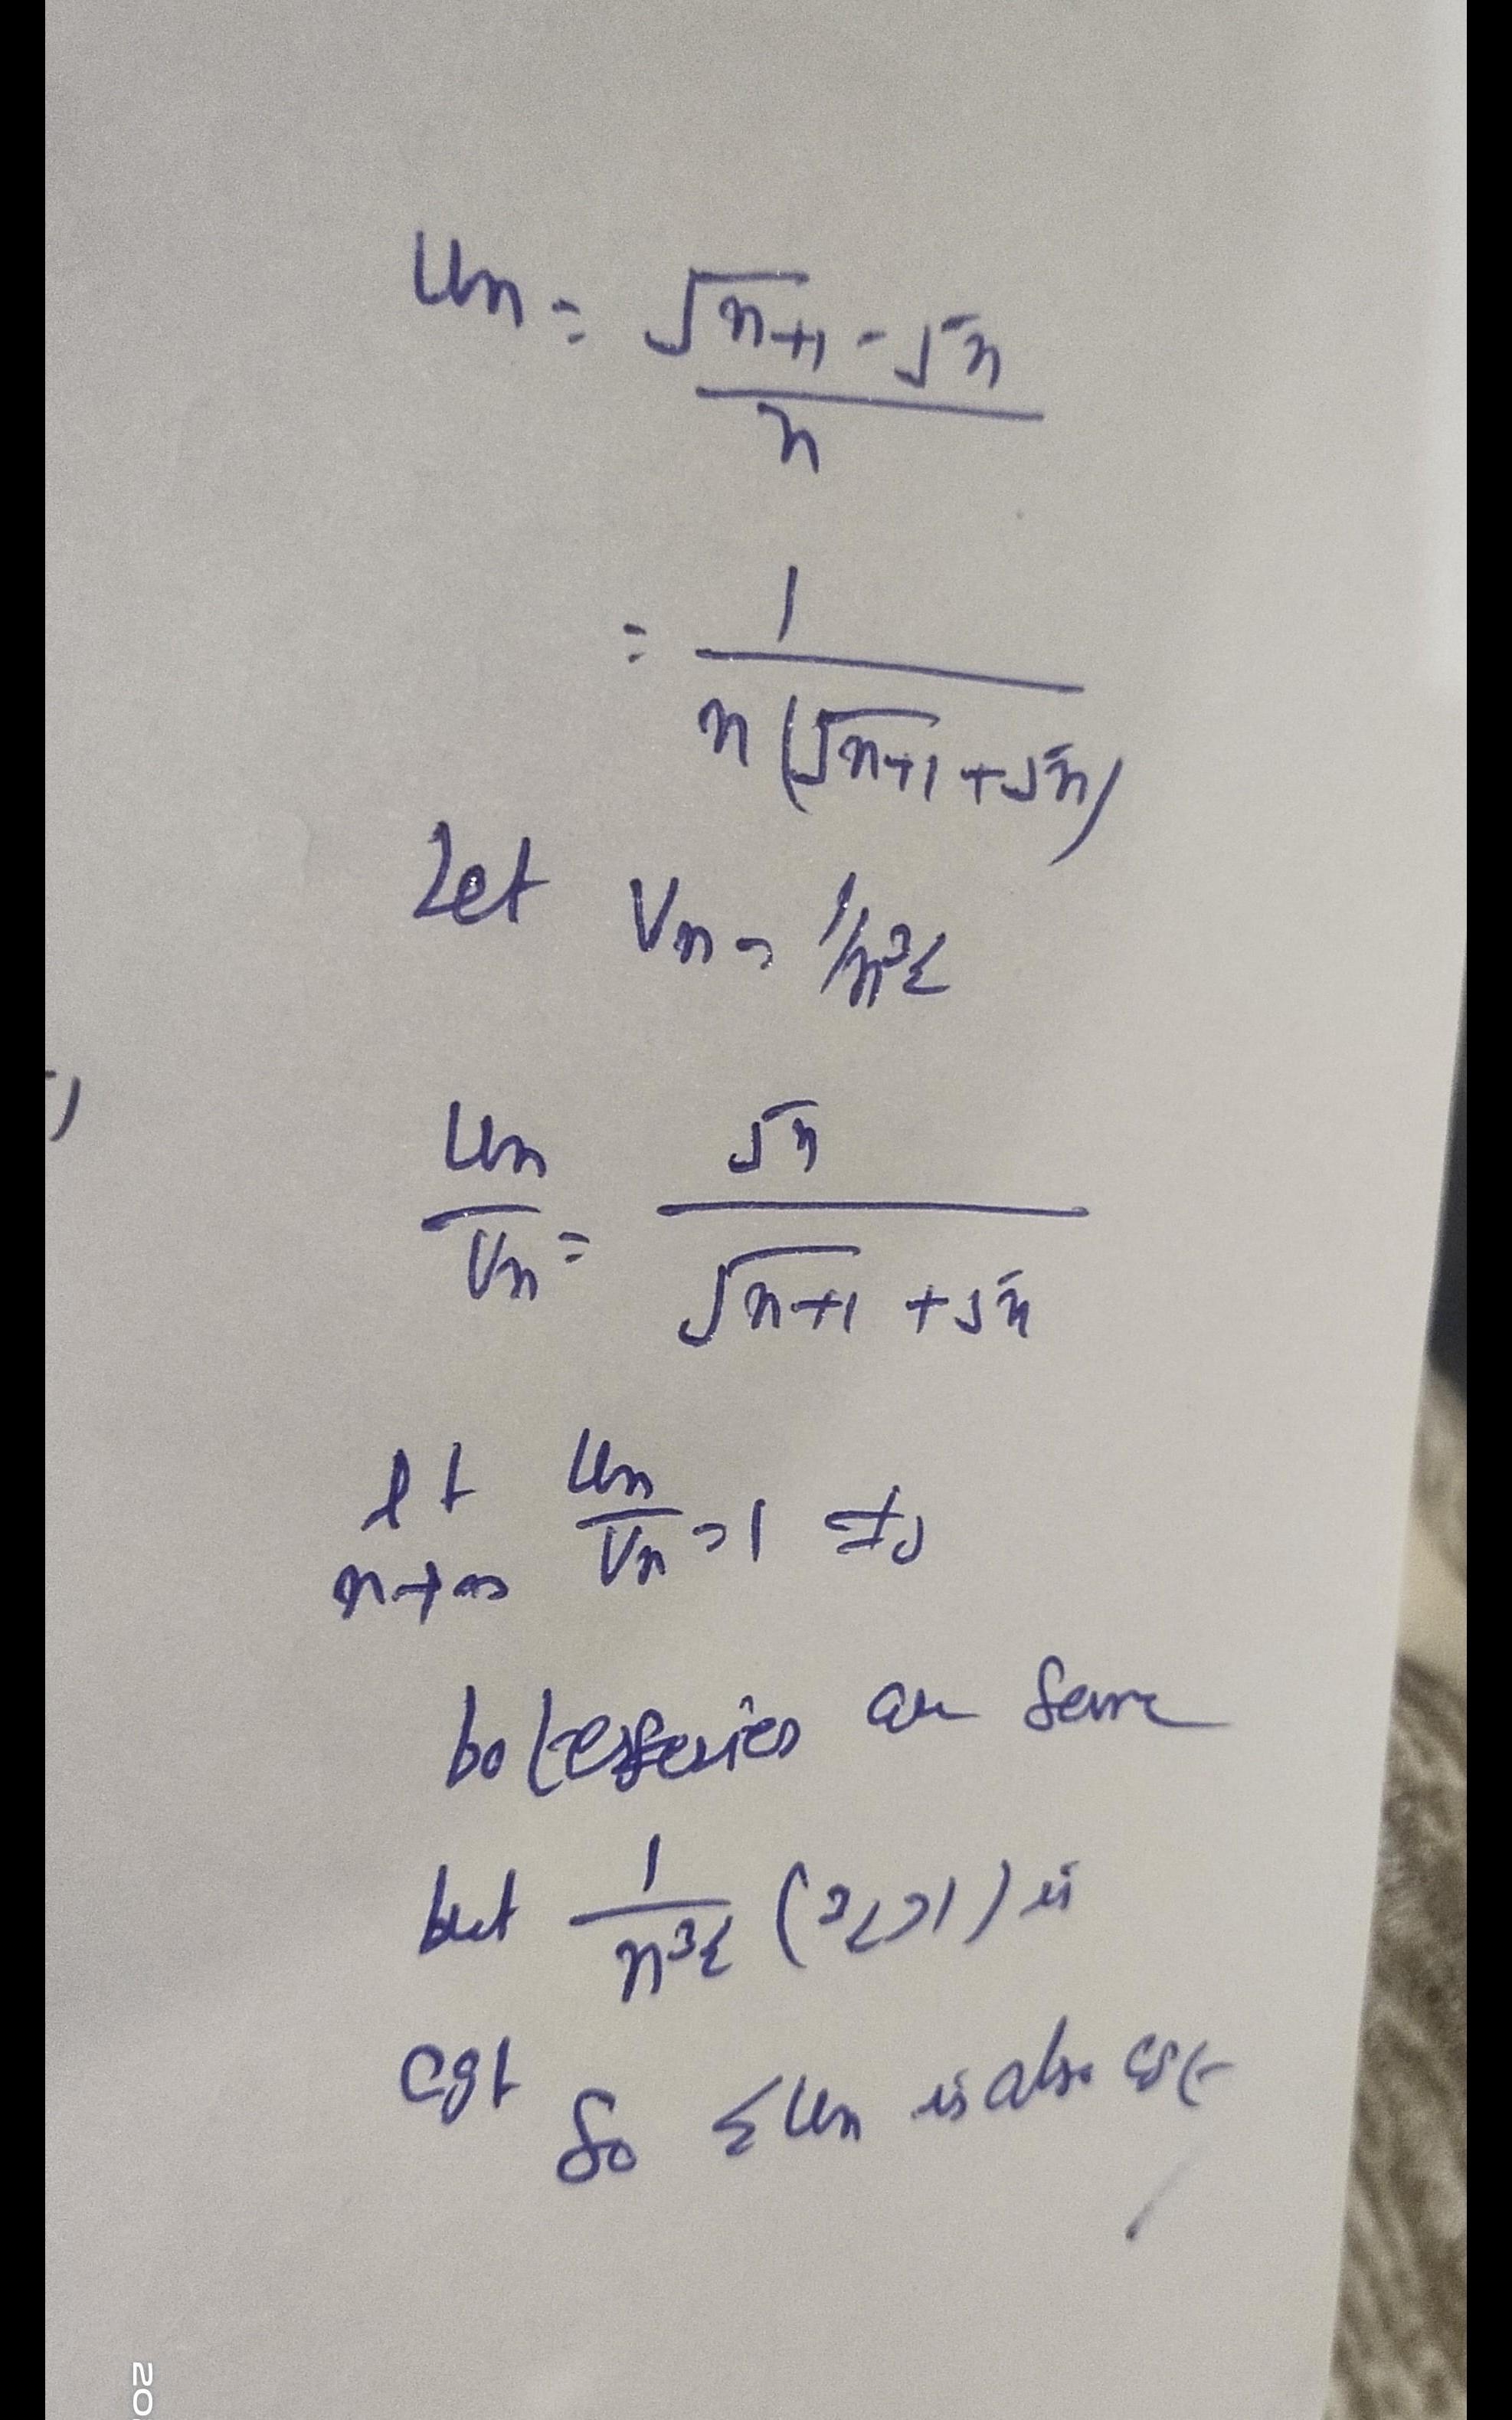 Un = √n+1 - √n / n
= 1 / n(√n+1 + √n)
Let Vn = 1/n^3/2
Un/Vn = √n / √n+1 + √n
lt n→∞ Un/Vn = 1 ≠0
series are same
but 1/n^3/2 (3/2>1) is
cgt
So ΣUn is also cgt
20